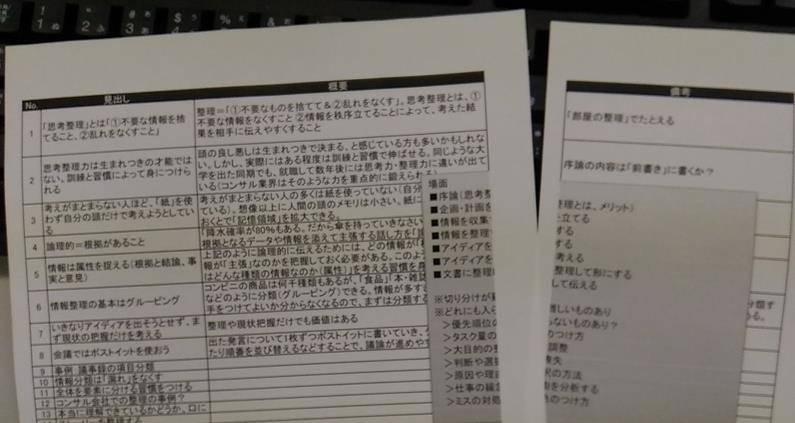 No. 見出し 概要
1 「思考整理」とは「①不要な情報を捨
てること、②乱れをなくすこと」
整理=「①不要なものを捨てて&②乱れをなくす」。思考整理とは、①
不要な情報をなくすこと ②情報を秩序立てることによって、考えた結
果を相手に伝えやすくすること
2 思考整理力は生まれつきの才能では
ない、訓練と習慣によって身につけら
れる
頭の良し悪しは生まれつきで決まる。と感じている方も多いかもしれな
い。しかし、実際にはある程度は訓練と習慣で伸ばせる。同じような大
学を出た同期でも、就職して数年後には思考力・整理力に違いが出て
いる(コンサル業界はそのような力を重点的に鍛えられ
3 考えがまとまらない人ほど、「紙」を使
わず自分の頭だけで考えようとしてい
る
考えがまとまらない人の多くは紙を使っていない(自分
ている)。想像以上に人間の頭のメモリは小さい。紙に
おくとで「記憶領域」を拡大できる。
4 論理的=根拠があること
「降水確率が80%もある。だから傘を持っていきなさい
根拠となるデータや情報を添えて主張する話し方を「
5 情報は属性を捉える(根拠と結論、事
実と意見)
上記のように論理的に伝えるためには、どの情報が「
報が「主張」なのかを把握しておく必要がある。このよ
はどんな種類の情報なのか(属性)」を考える習慣を
6 情報整理の基本はグルーピング
コンビニの商品は何千種類もあるが、「食品」「本・雑
などのように分類(グルーピング)できる。情報が多す
手をつけてよいか分からなくなるので、まずは分類する
7 いきなりアイディアを出そうとせず、ま
ず現状の把握だけを考える
整理や現状把握だけでも価値はある
8 会議ではポストイットを使おう
出た発言について1枚ずつポストイットに書いていき、
たり順番を並び替えるなどすることで、議論が進めやす
9 事例 議事録の項目分類
10 情報分類は「漏れ」をなくす
11 全体を要素に分ける習慣をつける
12 コンサル会社での整理の事例?
13 本当に理解できているかどうか、口に
場面
■序論(思考整
■企画・計画を
■情報を収集
■情報を整理
■アイディアを
■アイディアを
■文書に整理
※切り分けが
※どれにも入ら
>優先順位の
>タスク量の
>大目的の
>判断や選
>原因や理
>仕事の
>ミスの対処
備考
「部屋の整理」でたとえる
序論の内容は「前書き」に書くか?
整理とは、メリット)
立てる
する
する
考える
整理して形にする
して伝える
難しいものあり
らないものあり?
のつけ方
調整
択の方法
を分析する
のつけ方